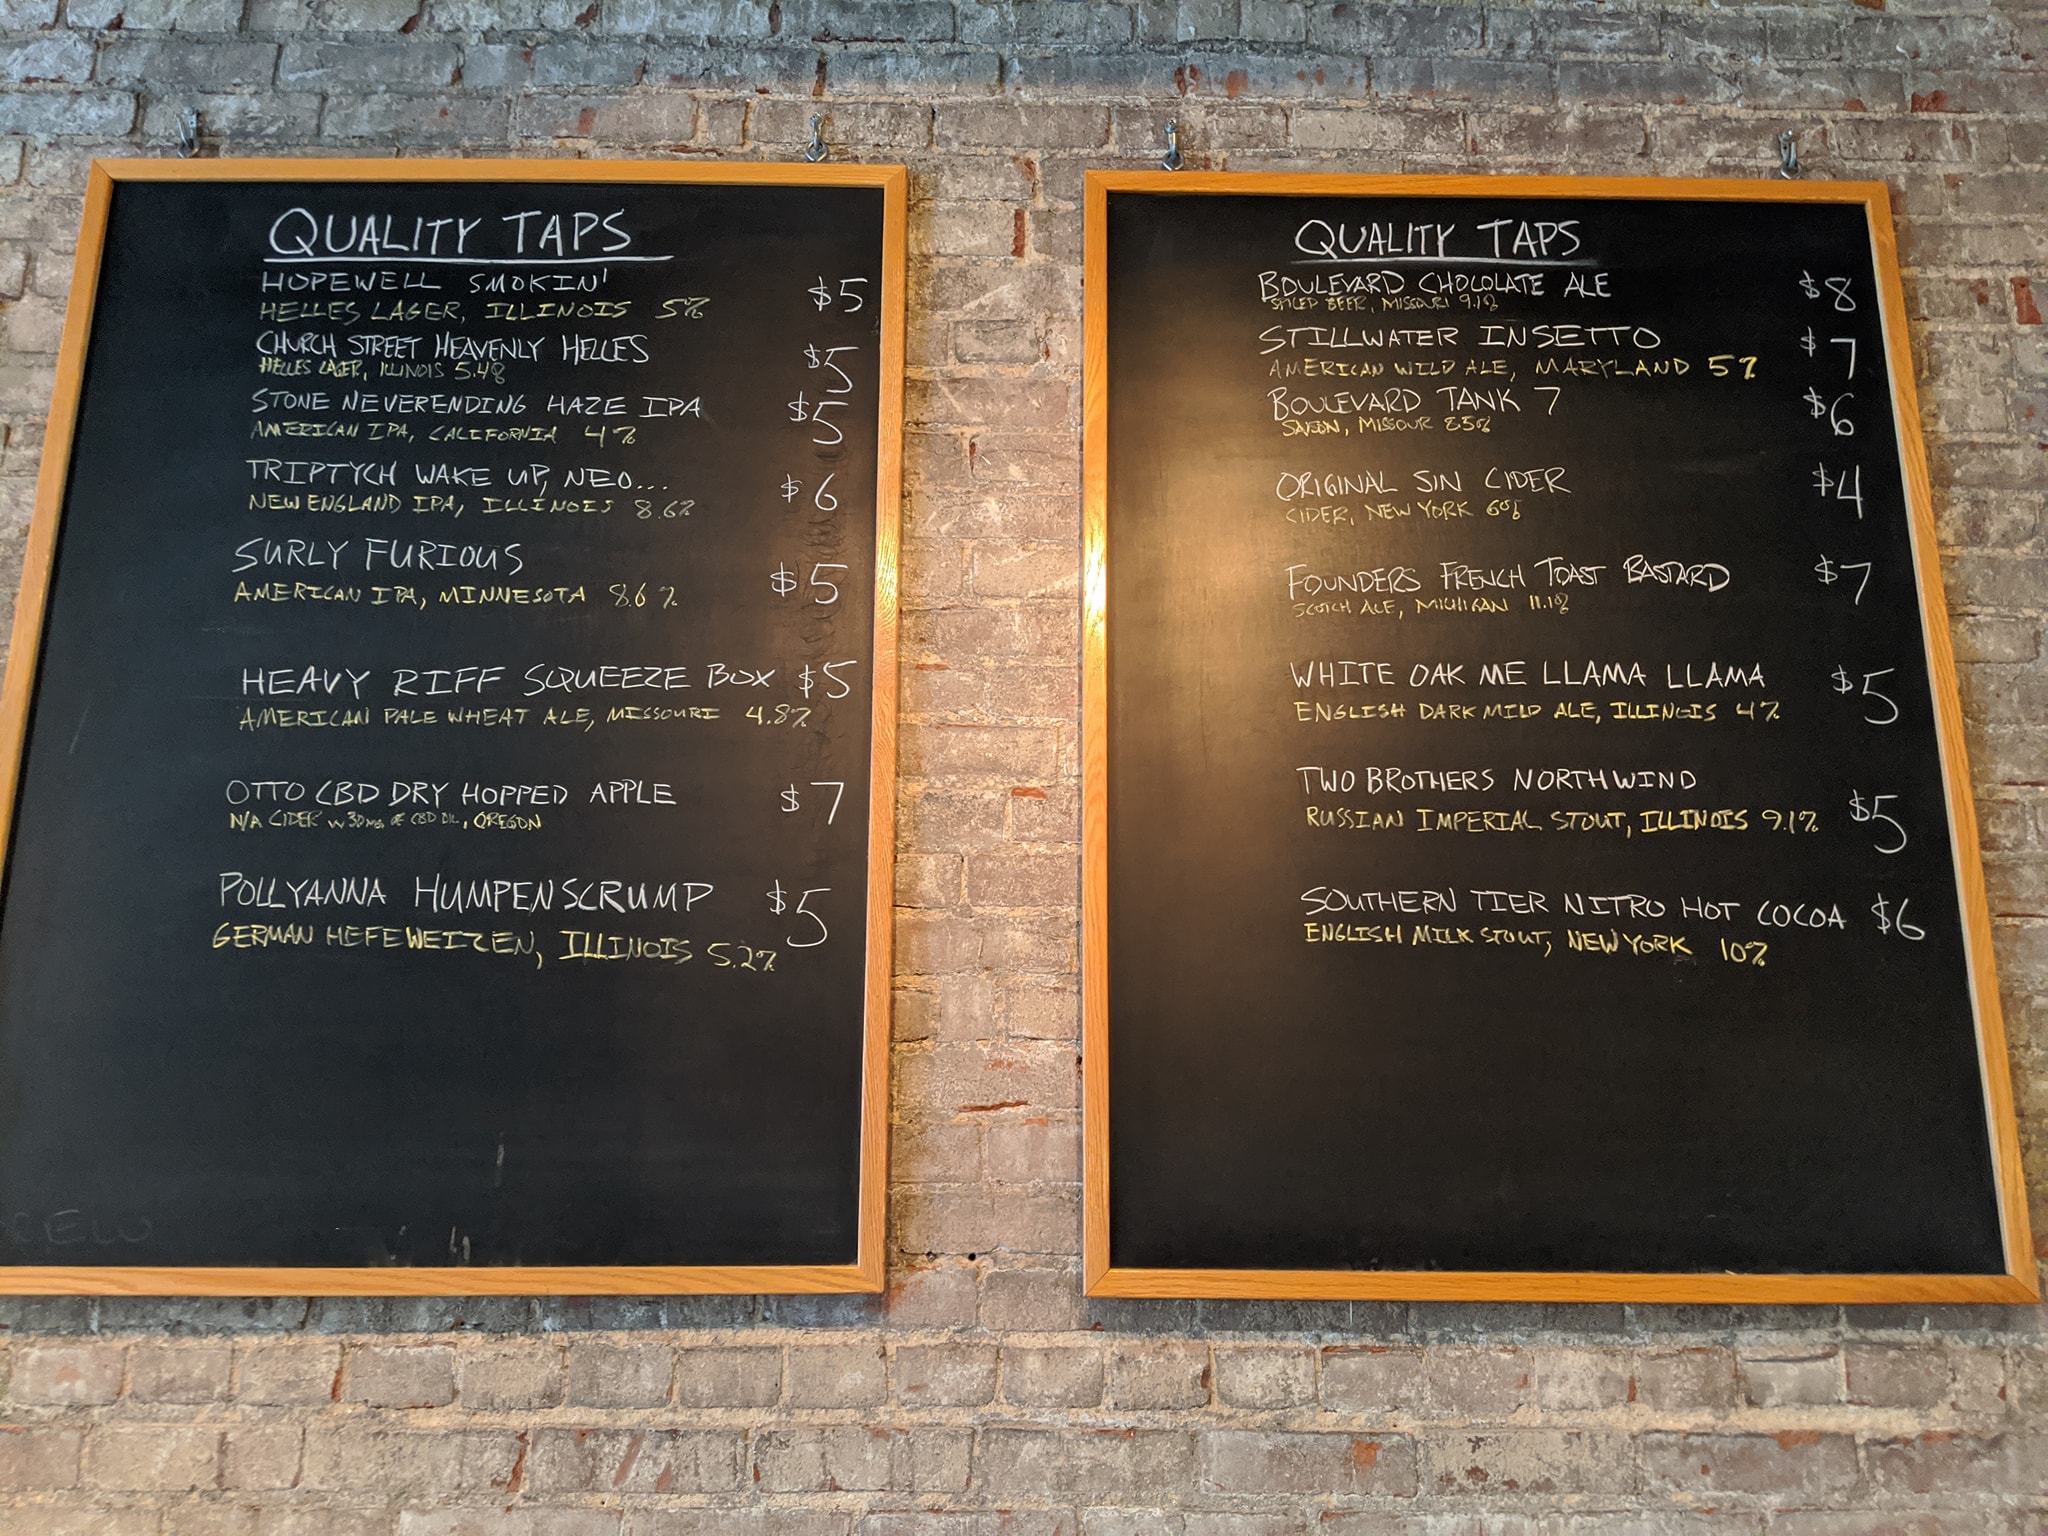 QUALITY TAPS
HOPEWELL SMOKIN' $5
HELLES LAGER, ILLINOIS 5%
CHURCH STREET HEAVENLY HELLES $5
HELLES LAGER, ILLINOIS 5.4%
STONE NEVERENDING HAZE IPA $5
AMERICAN IPA, CALIFORNIA 4%
TRIPTYCH WAKE UP, NEO... $6
NEW ENGLAND IPA, ILLINOIS 8.6%
SURLY FURIOUS $5
AMERICAN IPA, MINNESOTA 8.6%
HEAVY RIFF SQUEEZE BOX $5
AMERICAN PALE WHEAT ALE, MISSOURI 4.8%
OTTO CBD DRY HOPPED APPLE $7
N/A CIDER W 30MG OF CBD OIL, OREGON
POLLYANNA HUMPENSCRUMP $5
GERMAN HEFEWEIZEN, ILLINOIS 5.2%
QUALITY TAPS
BOULEVARD CHOCOLATE ALE $8
SPICED BEER, MISSOURI 9.1%
STILLWATER INSETTO $7
AMERICAN WILD ALE, MARYLAND 5%
BOULEVARD TANK 7 $6
SAISON, MISSOUR 8.5%
ORIGINAL SIN CIDER $4
CIDER, NEW YORK 6%
FOUNDERS FRENCH TOAST BASTARD $7
SCOTCH ALE, MICHIGAN 11.1%
WHITE OAK ME LLAMA LLAMA $5
ENGLISH DARK MILD ALE, ILLINOIS 4%
TWO BROTHERS NORTHWIND $5
RUSSIAN IMPERIAL STOUT, ILLINOIS 9.1%
SOUTHERN TIER NITRO HOT COCOA $6
ENGLISH MILK STOUT, NEW YORK 10%